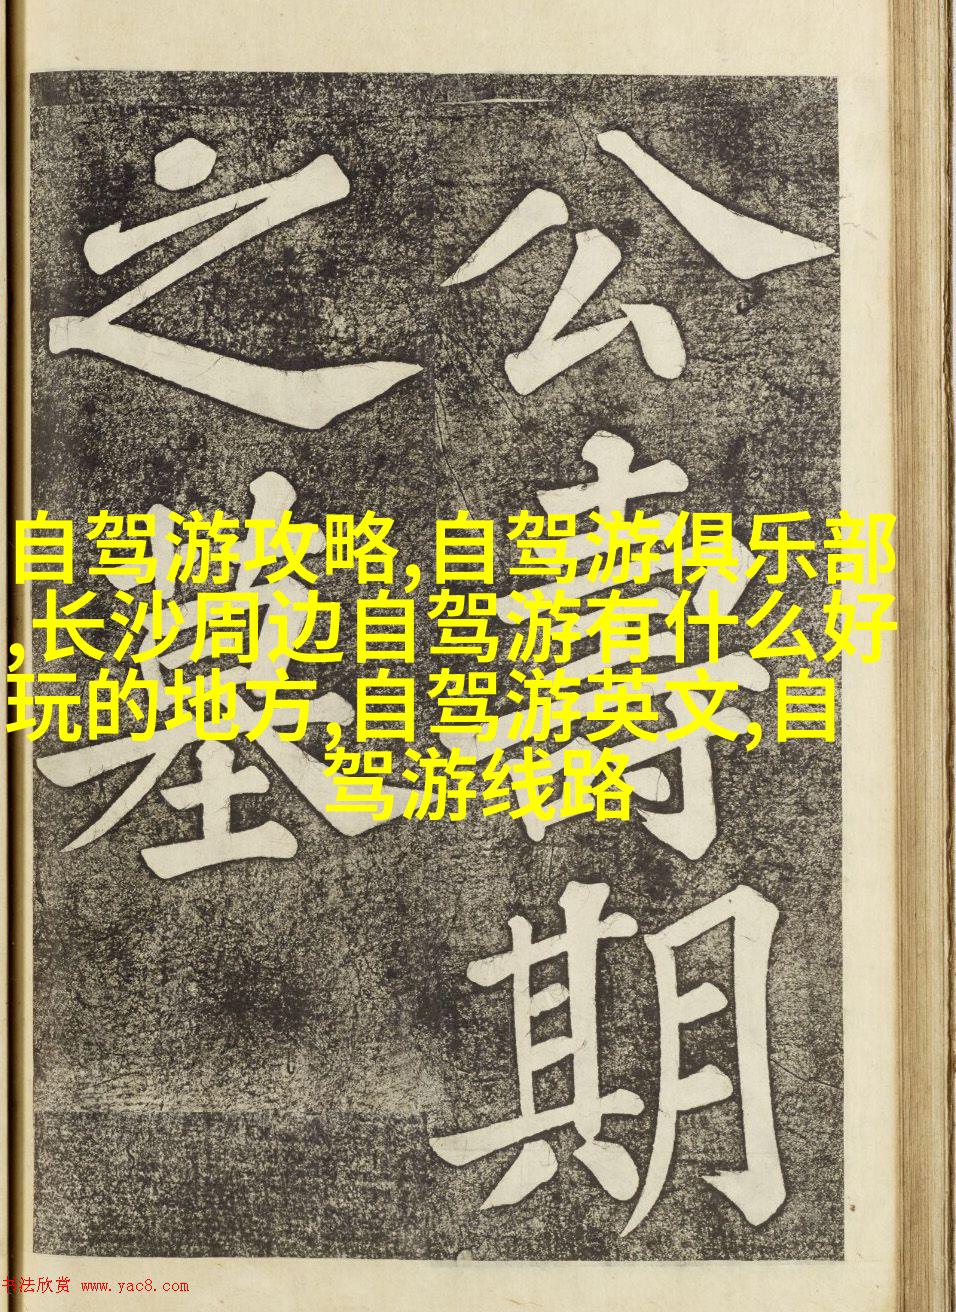 公壽期
之墓
自驾游攻略,自驾游俱乐部
,长沙周边自驾游有什么好
玩的地方,自驾游英文,自
驾游线路
书法欣赏 www.yac8.com